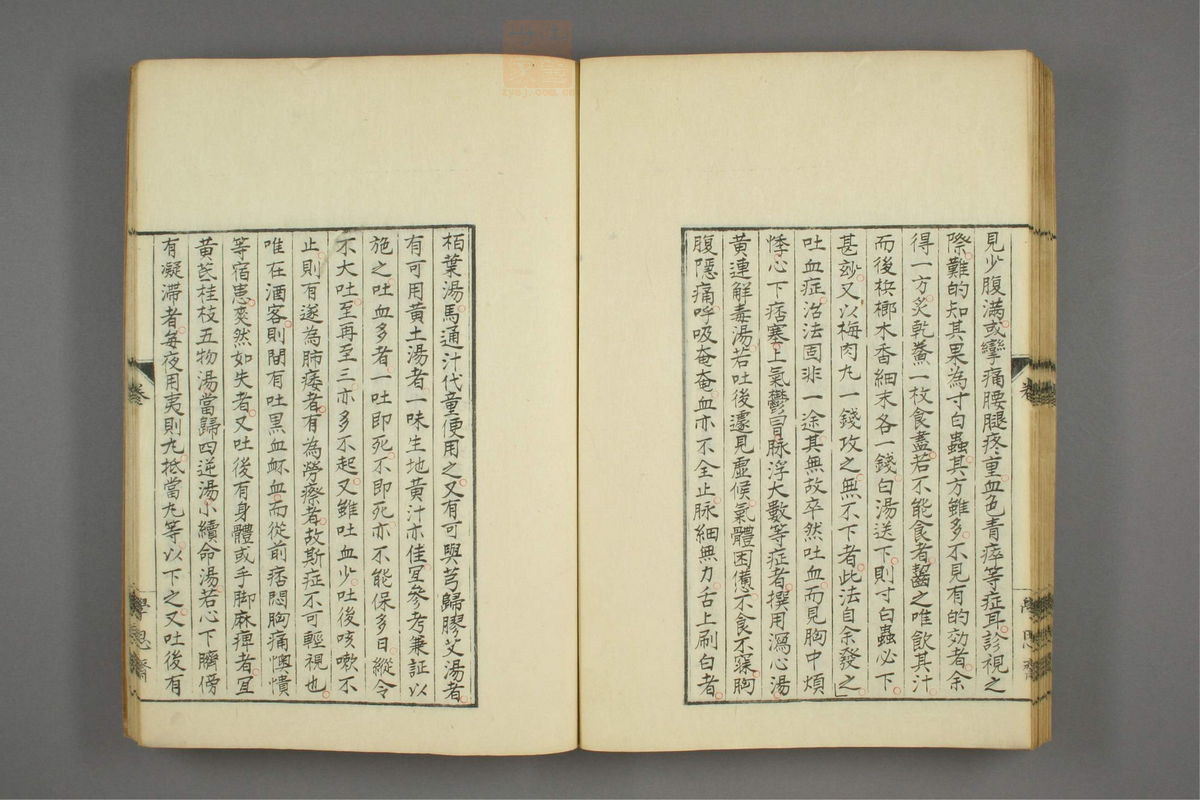 見少腹滿或攣痛腰腿疼重血色青瘁等症耳診視之
際難的知其果為寸白蟲其方雖多不見有的効者余
得一方炙乾鯗一枚食盡若不能食者齧之唯飲其汁
而後梹榔木香細末各一錢白湯送下則寸白蟲必下
甚妙又以梅肉丸一錢攻之無不下者此法自余發之
吐血症治法固非一途其無故卒然吐血而見胸中煩
悸心下痞塞上氣鬱冒脉浮大數等症者撰用瀉心湯
黃連解毒湯若吐後遽見虛候氣體困憊不食不寐胸
腹隱痛呼吸奄奄血亦不全止脉細無力舌上刷白者
栢葉湯馬通汁代童便用之又有可與芎歸膠艾湯者
有可用黃土湯者一味生地黃汁亦佳宜參考兼証以
施之吐血多者一吐即死不即死亦不能保多日縱令
不大吐至再至三亦多不起又雖吐血少吐後咳嗽不
止則有遂為肺痿者有為勞瘵者故斯症不可輕視也
唯在酒客則間有吐黑血衃血而從前痞悶胸痛懊憒
等宿患奕然如失者又吐後有身體或手脚麻痺者宜
黃芪桂枝五物湯當歸四逆湯小續命湯若心下臍傍
有凝滯者每夜用夷則丸抵當丸等以下之又吐後有
卷
學思齋